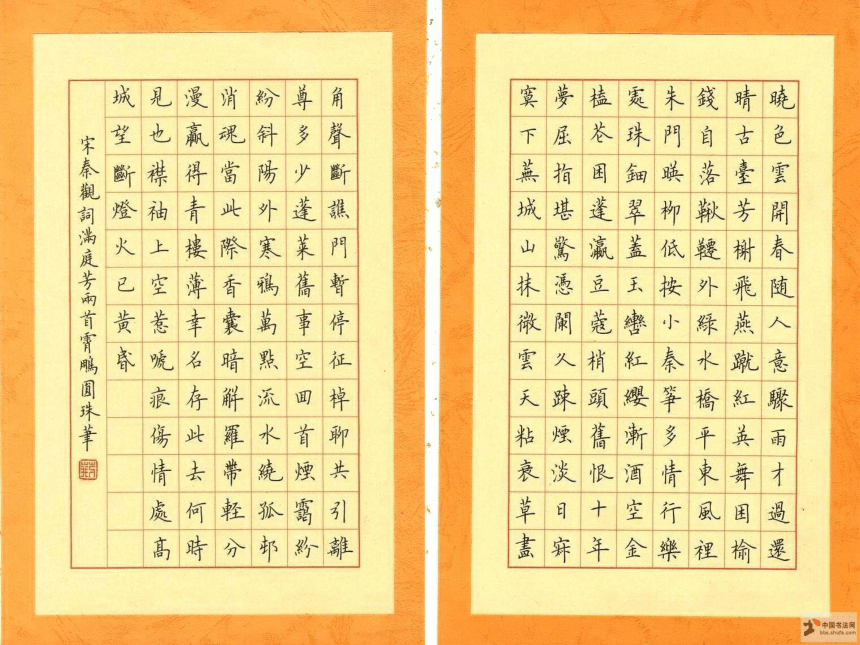 曉色雲開春隨人意驟雨才過還
晴古臺芳榭飛燕蹴紅英舞困榆
錢自落鞦韆外綠水橋平東風裡
朱門暎柳低按小秦箏多情行樂
處珠鈿翠蓋玉轡紅纓漸酒空金
榼花困蓬瀛豆蔻梢頭舊恨十年
夢屈指堪驚憑闌久踈煙淡日寂
寞下蕪城山抹微雲天粘衰草畫
角聲斷譙門暫停征棹聊共引離
尊多少蓬萊舊事空回首煙靄紛
紛斜陽外寒鴉萬點流水繞孤邨
消魂當此際香囊暗解羅帶輕分
漫贏得青樓薄幸名存此去何時
見也襟袖上空惹嗁痕傷情處高
城望斷燈火已黃昏
宋秦觀詞滿庭芳兩首霄鵬圓珠筆
中国书法网
bbs.shufa.com